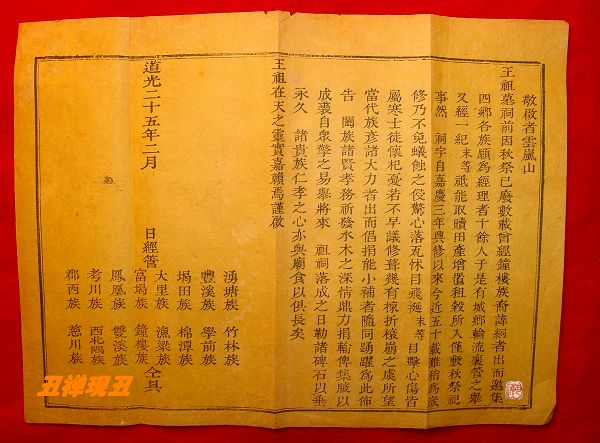 敬啟者雲嵐山
王祖墓祠前因秋祭已廢數載曾經鐘樓族裔諱綱者出而邀集
四鄉各族願為經理者十餘人于是有城鄉輪流襄督之舉
又經一紀末等祗能取贖田產增置租穀所入僅敷秋祭祀
事然 祠宇自嘉慶三年興修以來今近五十載雖稍為歲
修乃不免蟻蝕之侵驚心落瓦怵目飛 末等目擊心傷皆
屬寒士徒懷杞憂若不早議修葺幾有棟折榱崩之虞所望
當代族彥諸大力者出而倡捐能小補者隨同踴躍為此佈
告 闔族諸賢孝務祈發水木之深情鼎力捐輸俾集腋以
成裘自眾擎之易舉將來 祖祠落成之日勒諸碑石以垂
永久 諸貴族仁孝之心亦與廟食以俱長矣
王祖在天之靈實嘉賴焉謹啟
道光二十五年二月
日經管
湧塘族 竹林族
豐溪族 學前族
堨田族 棉潭族
大里族 漁梁族
富堨族 鐘樓族 仝具
鳳凰族 雙溪族
考川族 西北隅族
郡西族 慈川族
丑禅现丑